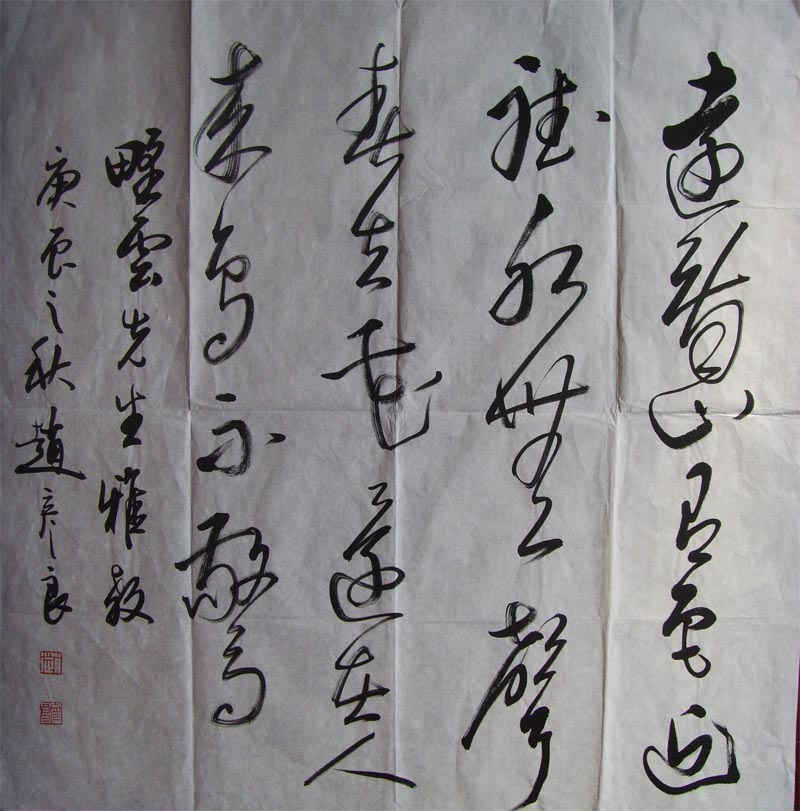 遠看山有色近
聽水無聲
春去花還在人
來鳥不驚
野雲先生雅教
庚辰之秋趙彦良